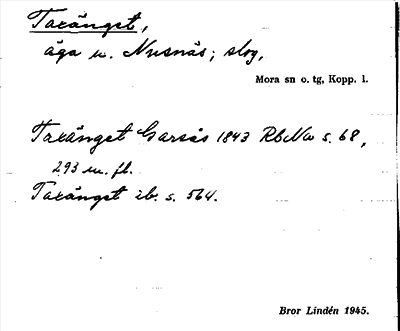 Taxänget,
äga u. Nusnäs; skog,
Mora sn o. tg, Kopp. l.
Taxänget Garsås 1843 RbNa s. 68,
293 m. fl.
Taxänget ib. s. 564.
Bror Lindén 1945.